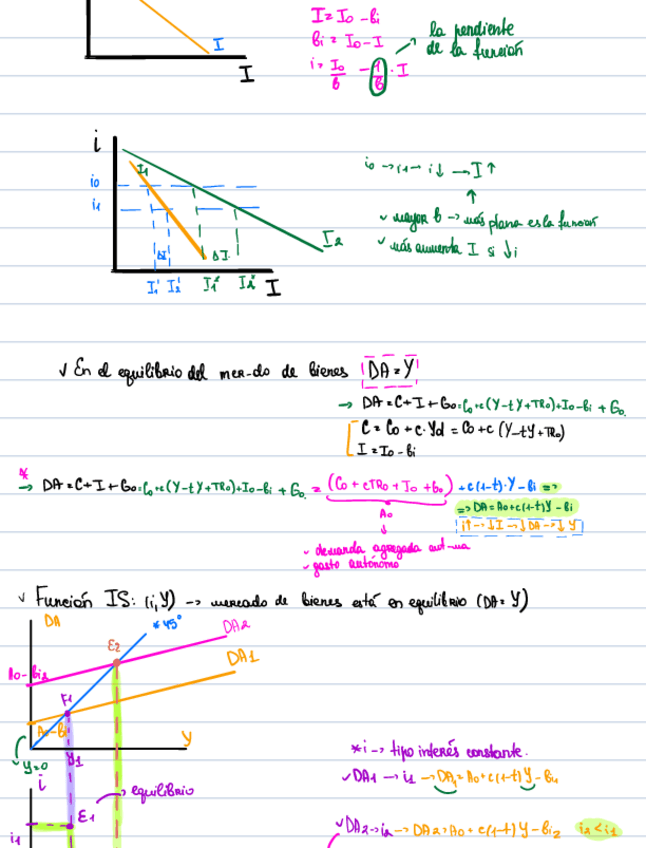 I = I₀ - bi
bi = I₀ - I
i = I₀/b - 1/b · I
la pendiente
de la función
I
I
i
i₀
i₁
I₁
I₂
ΔI
ΔI
I₁' I₂' I₁² I₂² I
i₀ → i₁ → i↓ → I↑
↑
✓ mayor b → más plana es la función
✓ más aumenta I si ↓i
✓ En el equilibrio del mer-do de bienes DA = Y
→ DA = C + I + G₀ = C₀ + c(Y - tY + TR₀) + I₀ - bi + G₀
C = C₀ + c · Yd = C₀ + c (Y - tY + TR₀)
I = I₀ - bi
*
→ DA = C + I + G₀ = C₀ + c(Y - tY + TR₀) + I₀ - bi + G₀ = (C₀ + cTR₀ + I₀ + G₀) + c(1-t)·Y - bi =>
A₀
=> DA = A₀ + c(1-t)Y - bi
i↑ → ↓I → ↓DA → ↓Y
↓
- demanda agregada aut-ma
- gasto autónomo
✓ Función IS: (i, Y) → mercado de bienes está en equilibrio (DA = Y)
DA
* 45°
DA2
E2
DA1
A₀ - bi₂
E1
A₀ - bi
Y
Y=0
Y1
i
equilibrio
E1
i₁
* i → tipo interés constante.
✓ DA1 → i₁ → DA₁ = A₀ + c(1-t)Y - bi₁
✓ DA2 → i₂ → DA2 = A₀ + c(1-t)Y - bi₂ i₂ < i₁